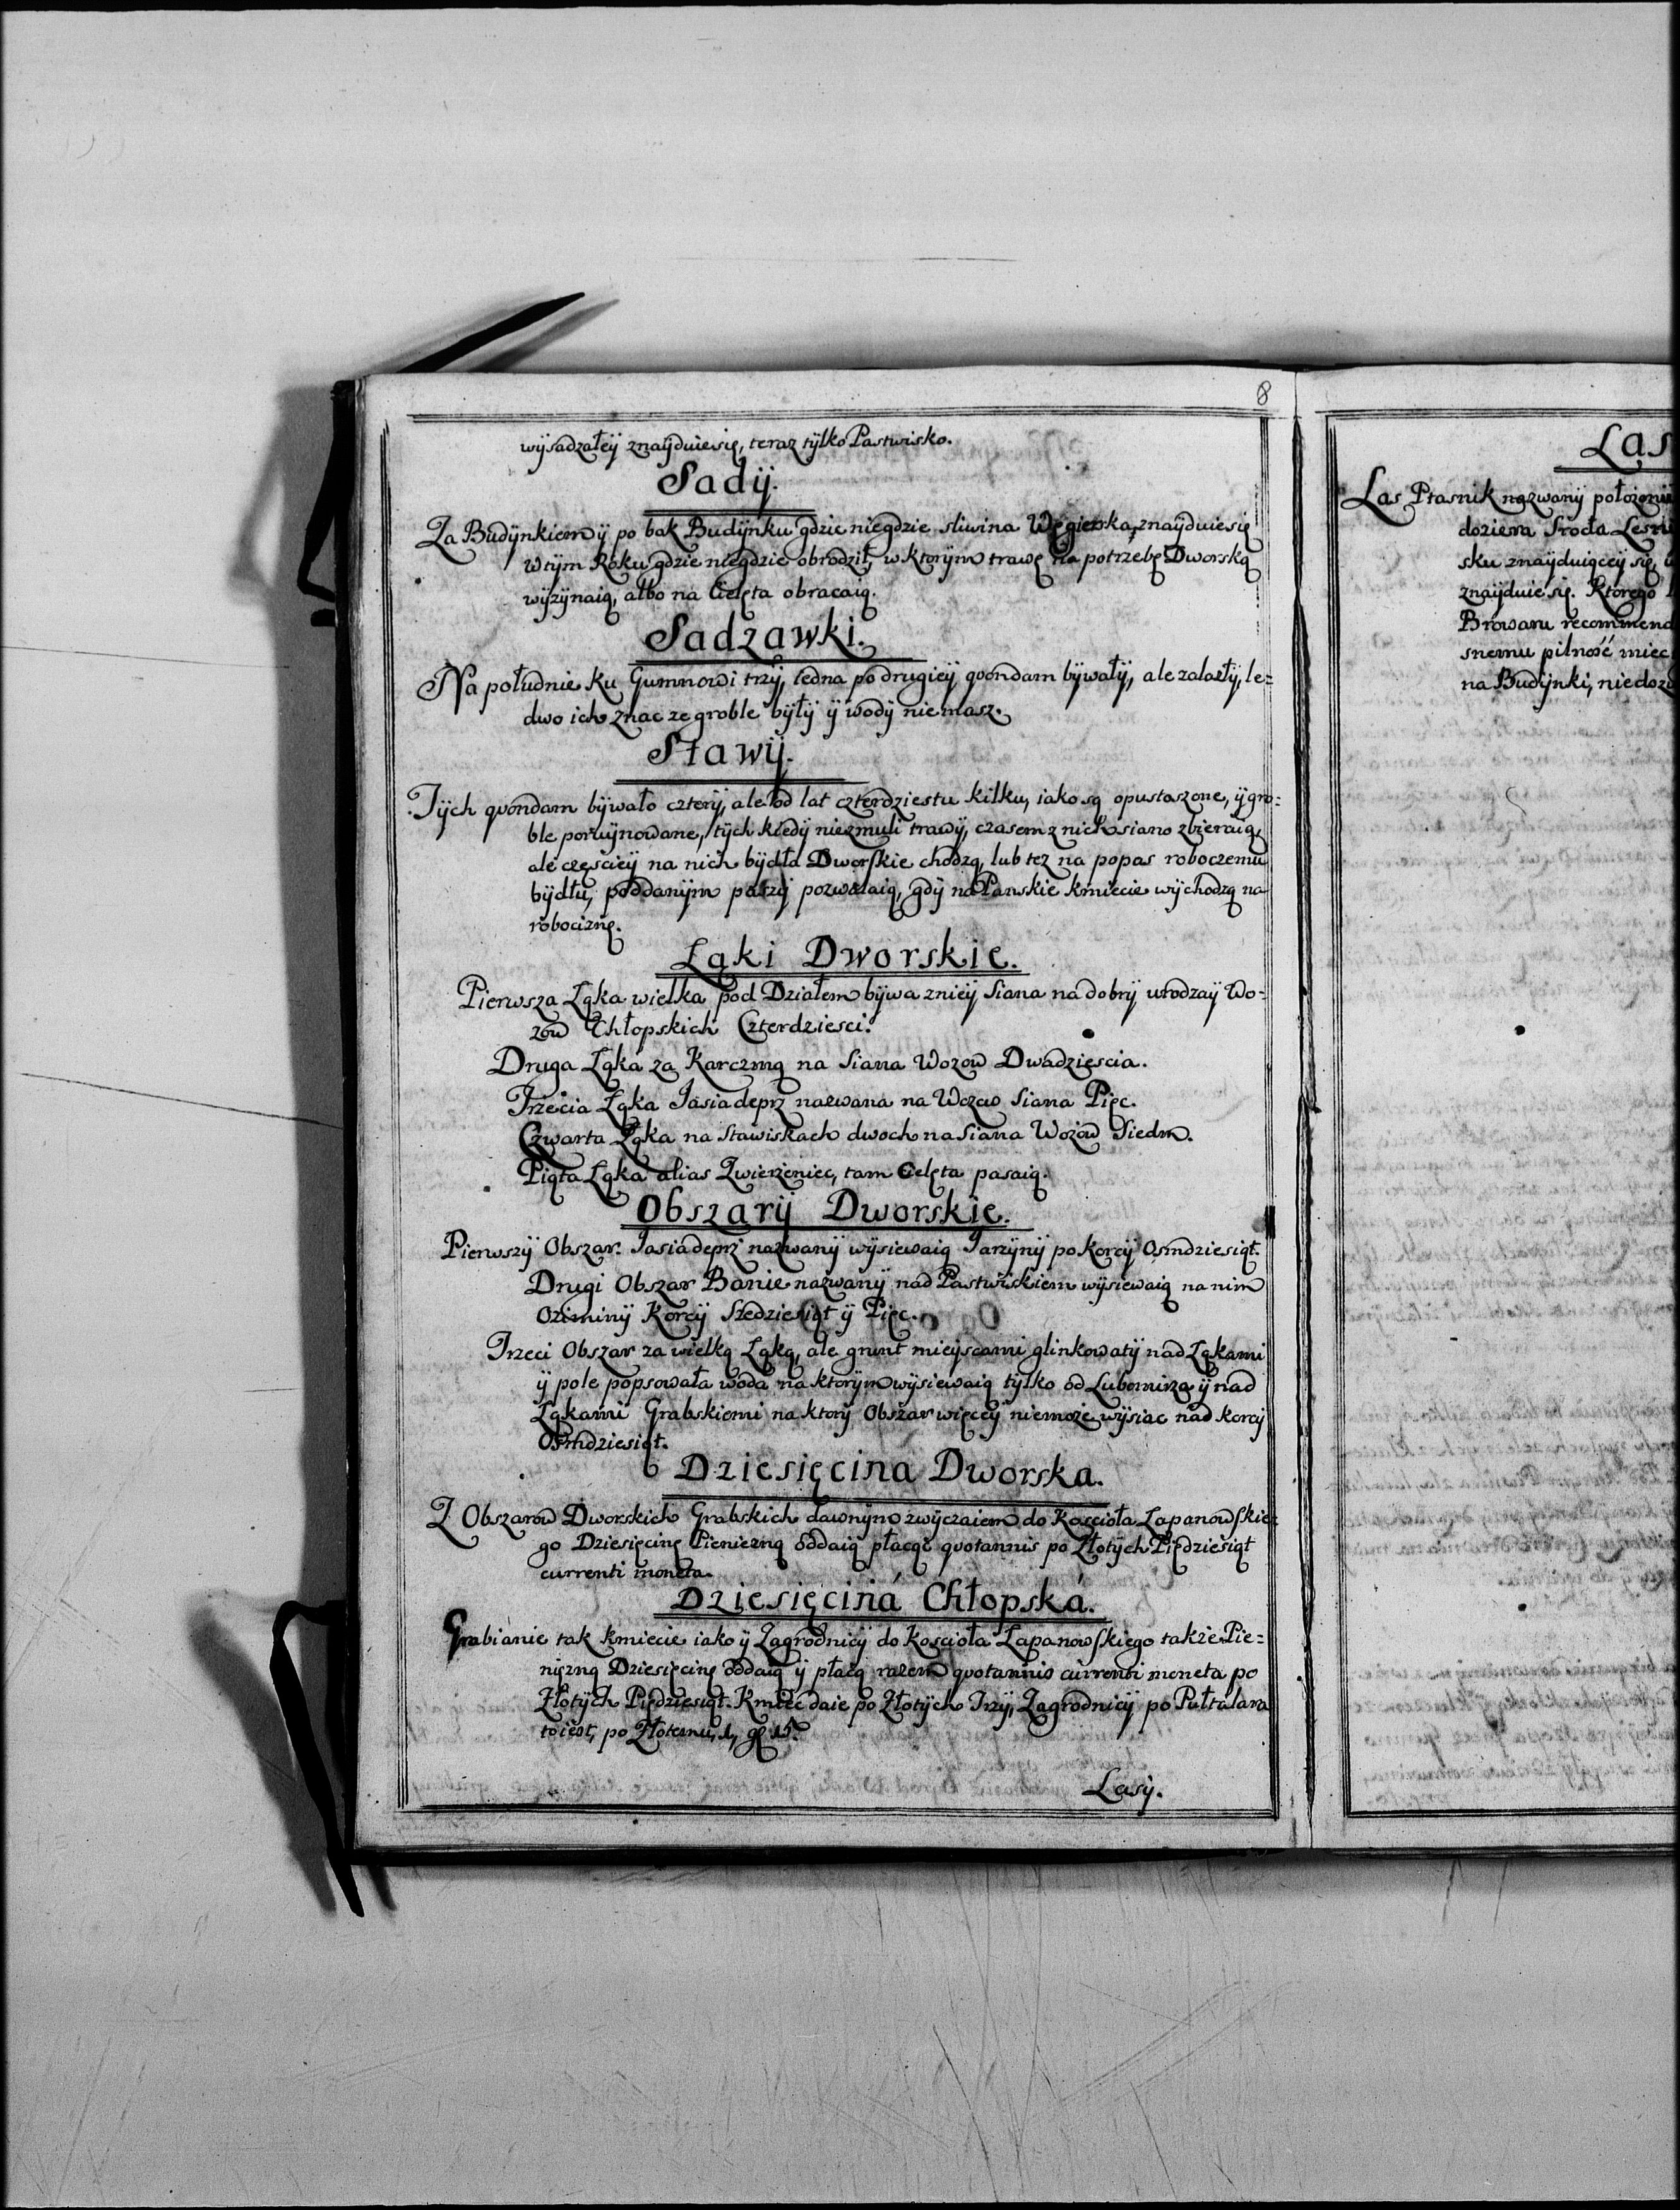 8
wÿsadzałeÿ znaÿduiesię, teraz tÿlko Pastwisko.
Sadÿ.
Za Budÿnkiem ÿ po bok Budÿnku gdzie niegdzie sliwina Węgierska, znaÿduie się
w tÿm Roku gdzie niegdzie obrodził, w ktorÿm trawę na potrzebę Dworską
wÿzÿnaią, albo na Cielęta obracaią.
Sadzawki.
Na południe ku Gumnowi trzÿ, iedna po drugieÿ qvondam bÿwałÿ, ale zalazłÿ, le=
dwo ich znac ze groble bÿłÿ ÿ wodÿ niemasz.
Stawÿ.
Tÿch qvondam bÿwało czterÿ, ale od lat czterdziestu kilku, iako są opustaszone, ÿ gro=
ble porujnowane, tÿch kiedÿ niezmuli trawÿ, czasem z nich siano zbieraią,
ale częscieÿ na nich bÿdła Dworskie chodzą, lub tez na popas roboczemu
bÿdłu, poddanÿm paszÿ pozwalaią, gdÿ na Panskie kmiecie wÿchodzą na
robociznę.
Łąki Dworskie.
Pierwsza Łąka wielka pod Działem bÿwa znieÿ Siana na dobrÿ urodzaÿ Wo=
zow Chłopskich Czterdziesci.
Druga Łąka za Karczmą na Siana Wozow Dwadziescia.
Trzecia Łąka Jasiadeprz nazwana na Wozow Siana Pięc.
Czwarta Łąka na Stawiskach dwoch na Siana Wozow Siedm.
Piąta Łąka alias Zwierzeniec, tam Cielęta pasaią.
Obszarÿ Dworskie.
Pierwszÿ Obszar Jasiadeprz nazwanÿ wÿsiewaią Jarzÿnÿ po korcÿ Osmdziesiąt.
Drugi Obszar Banie nazwanÿ nad Pastwiskiem wÿsiewaią na nim
Oziminÿ Korcÿ Siedziesiąt ÿ Pięc.
Trzeci Obszar za wielką Łąką, ale grunt mieÿscami glinkowatÿ nad Łąkami
ÿ pole popsowała woda na ktorÿm wÿsiewaią tÿlko od Lubomirza ÿ nad
Łąkami Grabskiemi na ktorÿ Obszar więceÿ niemoze wÿsiac nad korcÿ
Osmdziesiąt.
Dziesięcina Dworska.
Z Obszarow Dworskich Grabskich dawnÿm zwÿczaiem do Koscioła Łapanowskie=
go Dziesięcinę Pieniezną oddaią płacąc qvotannis po Złotÿch Pięćdziesiąt
currenti moneta.
Dziesięcina Chłopska.
Grabianie tak kmiecie iako ÿ Zagrodnicÿ do Koscioła Łapanowskiego takze Pie=
nięzną Dziesięcinę oddaią ÿ płacą razem qvotannis currenti moneta po
Złotÿch Pięćdziesiąt. Kmiec daie po Złotÿch Trzÿ, Zagrodnicÿ po Pułtalara
to iest, po Złotemu, 1, gr 15.
Lasÿ.
Las
Las Ptasnik nazwanÿ połozenie
doziera Sroda Lesni
sku znaÿduiąceÿ się,
znaÿduie się. Ktorego
Browaru recommend
snemu pilność miec
na Budÿnki, niedozw